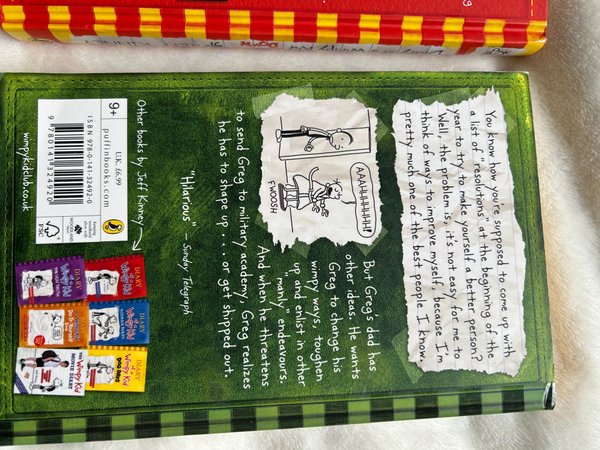 You know how you're supposed to come up with
a list of "resolutions" at the beginning of the
year to try to make yourself a better person?
Well, the problem is, it's not easy for me to
think of ways to improve myself, because I'm
pretty much one of the best people I know.
AAAHHHHHH!
FWOOSH
But Greg's dad has
other ideas. He wants
Greg to change his
wimpy ways, toughen
up and enlist in other
"manly" endeavours.
And when he threatens
to send Greg to military academy, Greg realizes
he has to shape up . . . or get shipped out.
"Hilarious" – Sunday Telegraph
Other books by Jeff Kinney
9+
U.K. £6.99
puffinbooks.com
ISBN 978-0-141-32492-0
9 780141 324920
FSC
wimpykidclub.co.uk
DIARY
of a
Wimpy Kid
DIARY
of a
Wimpy Kid
DIARY
of a
Wimpy Kid
DOG DAYS
DIARY
of a
Wimpy Kid
Wimpy Kid
MOVIE DIARY